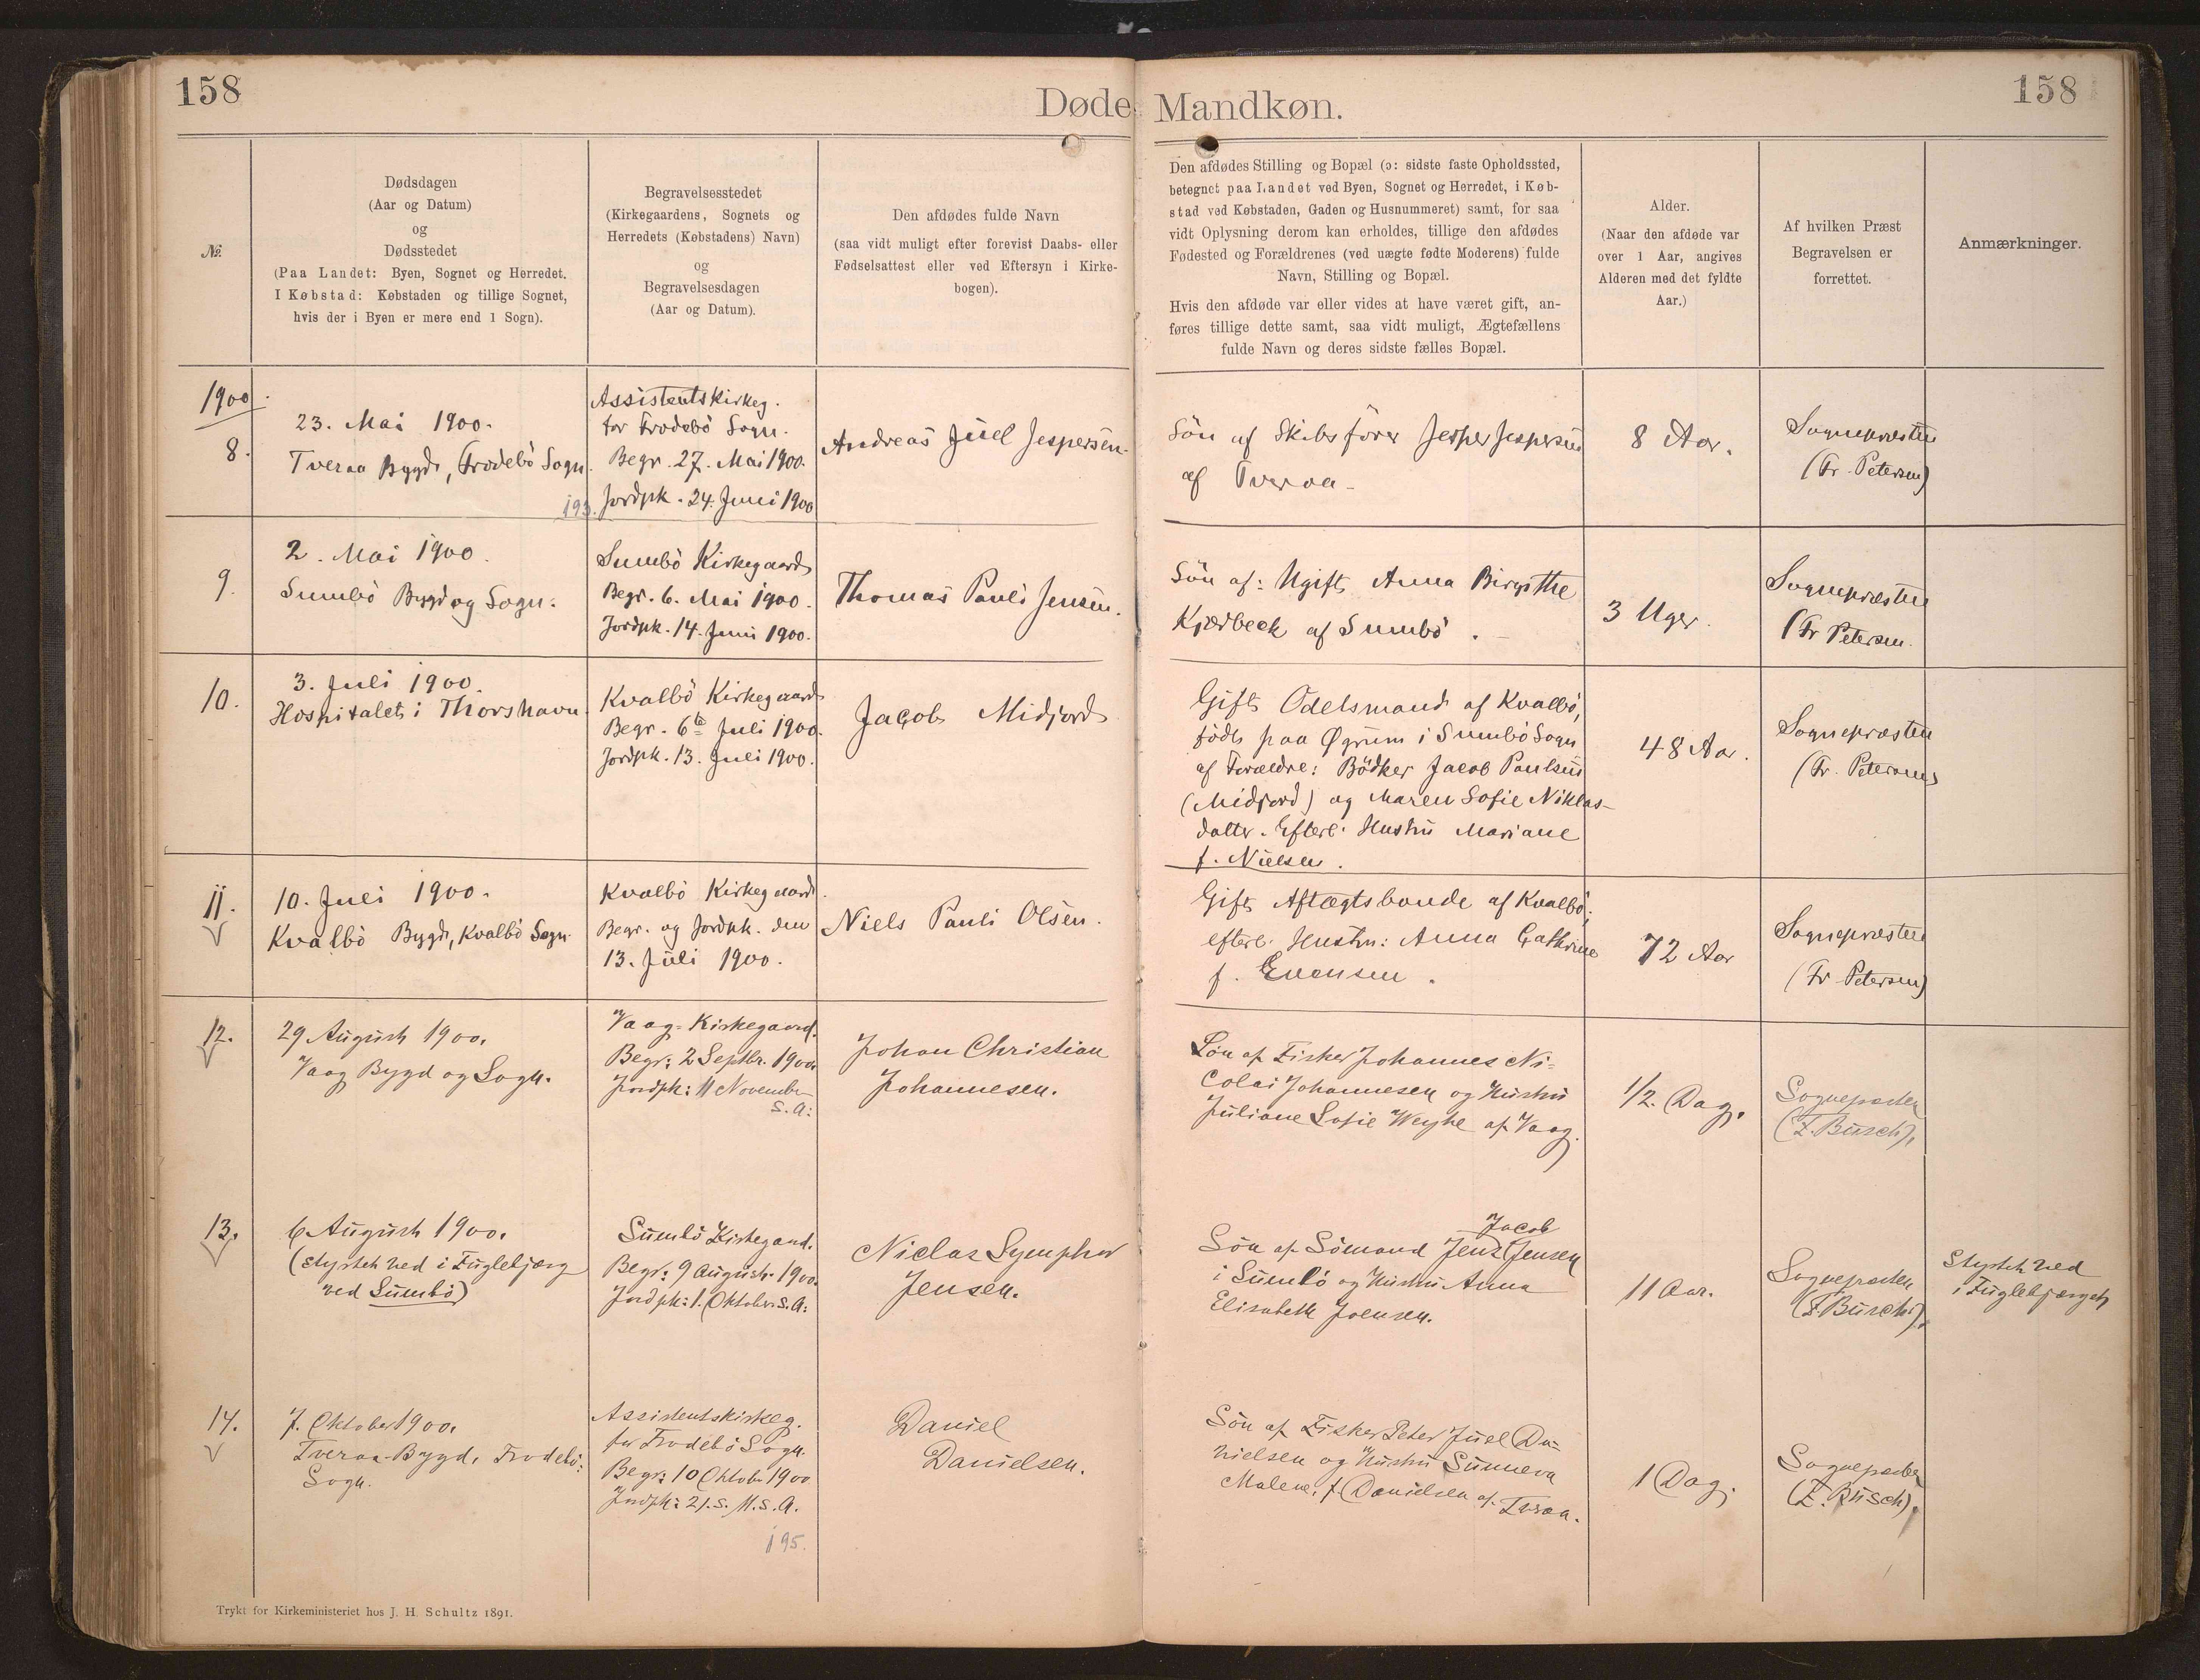 158
Døde Mandkøn.
158
№.
Dødsdagen
(Aar og Datum)
og
Dødsstedet
(Paa Landet: Byen, Sognet og Herredet.
I Købstad: Købstaden og tillige Sognet,
hvis der i Byen er mere end 1 Sogn).
Begravelsesstedet
(Kirkegaardens, Sognets og
Herredets (Købstadens) Navn)
og
Begravelsesdagen
(Aar og Datum).
Den afdødes fulde Navn
(saa vidt muligt efter forevist Daabs- eller
Fødselsattest eller ved Eftersyn i Kirke-
bogen).
Den afdødes Stilling og Bopæl (ɔ: sidste faste Opholdssted,
betegnet paa Landet ved Byen, Sognet og Herredet, i Køb-
stad ved Købstaden, Gaden og Husnummeret) samt, for saa
vidt Oplysning derom kan erholdes, tillige den afdødes
Fødested og Forældrenes (ved uægte fødte Moderens) fulde
Navn, Stilling og Bopæl.
Hvis den afdøde var eller vides at have været gift, an-
føres tillige dette samt, saa vidt muligt, Ægtefællens
fulde Navn og deres sidste fælles Bopæl.
Alder.
(Naar den afdøde var
over 1 Aar, angives
Alderen med det fyldte
Aar.)
Af hvilken Præst
Begravelsen er
forrettet.
Anmærkninger.
1900.
8.
23. Mai 1900.
Tveraa Bygd, Frodebö Sogn.
Assistentskirkeg.
for Frodebö Sogn.
Begr. 27. Mai 1900.
193. Jordpk. 24. Juni 1900
Andreas Juel Jespersen.
Sön af Skibsförer Jesper Jespersen
af Tveraa
8 Aar.
Sognepræsten
(Fr. Petersen)
9.
2. Mai 1900.
Sumbö Bygd og Sogn.
Sumbö Kirkegaard
Begr. 6. Mai 1900.
Jordpk. 14. Juni 1900.
Thomas Pauli Jensen.
Sön af: Ugift Anna Birgitthe
Kjærbeck af Sumbö.
3 Uger.
Sognepræsten
(Fr Petersen.
10.
3. Juli 1900.
Hospitalet i Thorshavn.
Kvalbö Kirkegaard
Begr. 6te Juli 1900.
Jordpk. 13. Juli 1900.
Jacob Midjord
Gift Odelsmand af Kvalbö,
födt paa Øgrum i Sumbö Sogn
af Forældre: Bödker Jacob Paulsen
(Midjord) og Maren Sofie Niklas-
datter. Efterl. Hustru Mariane
f. Nielsen.
48 Aar.
Sognepræsten
(Fr. Petersen)
11.
10. Juli 1900.
Kvalbö Bygd, Kvalbö Sogn.
Kvalbö Kirkegaard.
Begr. og Jordpk. den
13. Juli 1900.
Niels Pauli Olsen.
Gift Aftægtsbonde af Kvalbö;
efterl. Hustru: Anna Cathrine
f. Evensen.
72 Aar
Sognepræsten
(Fr Petersen)
12.
29 August 1900.
Vaag Bygd og Sogn.
Vaag-Kirkegaard.
Begr: 2 Septbr. 1900.
Jordpk: 11 November
s. A:
Johan Christian
Johannesen.
Sön af Fisker Johannes Ni-
colai Johannesen og Hustru
Juliane Sofie Weyhe af Vaag.
1/2. Dag.
Sognepræsten
(F. Busch).
13.
6 August 1900.
(styrtet ned i Fuglebjerg
ved Sumbö)
Sumbö Kirkegaard.
Begr: 9 August. 1900.
Jordpk: 1. Oktober s. A:
Niclas Symphor
Jensen.
Jacob
Sön af Sömand Jens Jensen
i Sumbö og Hustru Anna
Elisabeth Joensen.
11 Aar.
Sognepræsten
(F. Busch).
Styrtet ned
i Fuglebjerget
14.
7. Oktober 1900.
Tveraa-Bygd, Frodebö:
Sogn.
Assistentskirkeg.
for Frodebö Sogn.
Begr: 10 Oktober 1900
Jordpk: 21. s. M. s. A.
195.
Daniel
Danielsen.
Sön af Fisker Peter Juel Da-
nielsen og Hustru Sunneva
Malene, f. Danielsen af Tveraa.
1 Dag.
Sognepræsten
(F. Busch).
Trykt for Kirkeministeriet hos J. H. Schultz 1891.